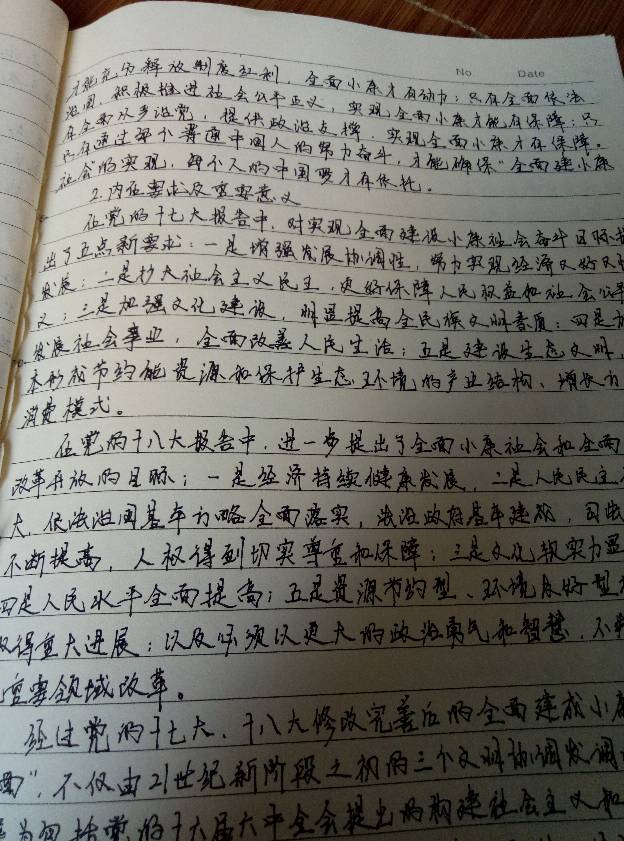 No Date
才能充分释放制度红利，全面小康才有动力；只有全面依法
治国，积极推进社会公平正义，实现全面小康才能有保障；只
有全面从严治党，提供政治支撑，实现全面小康才有保障。
只有通过每个普通中国人的努力奋斗，才能确保“全面建小康
社会的实现，每个人的中国梦才有依托。
2.内在要求及重要意义
在党的十七大报告中，对实现全面建设小康社会奋斗目标提
出了五点新要求：一是增强发展协调性，努力实现经济又好又快
发展；二是扩大社会主义民主，更好保障人民权益和社会公平
义；三是加强文化建设，明显提高全民族文明素质；四是加
发展社会事业，全面改善人民生活；五是建设生态文明，
本形成节约能资源和保护生态环境的产业结构、增长方
消费模式。
在党的十八大报告中，进一步提出了全面小康社会和全面
改革开放的目标；一是经济持续健康发展，二是人民民主
大，依法治国基本方略全面落实，法治政府基本建成，司法
不断提高，人权得到切实尊重和保障；三是文化软实力显
四是人民水平全面提高；五是资源节约型、环境友好型
取得重大进展；以及必须以更大的政治勇气和智慧，不
重要领域改革。
经过党的十七大、十八大修改完善后的全面建成小康
面”，不仅由21世纪新阶段之初的三个文明协调发调
为包括党的十六届六中全会提出的构建社会主义和